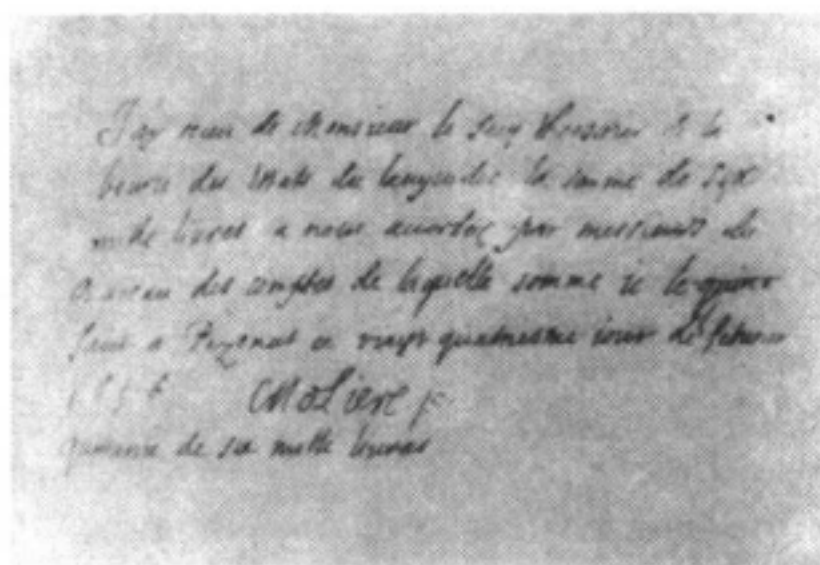 Jay receu de Monsieur le Secq thresorier de la
bource des Estats du languedoc la somme de six
mille livres a nous accordez par messieurs du
Bureau des comptes de laquelle somme ie le quitte
faict a Pezenas ce vingt quatriesme iour de febvrier
1656 Moliere
quittance de six mille livres